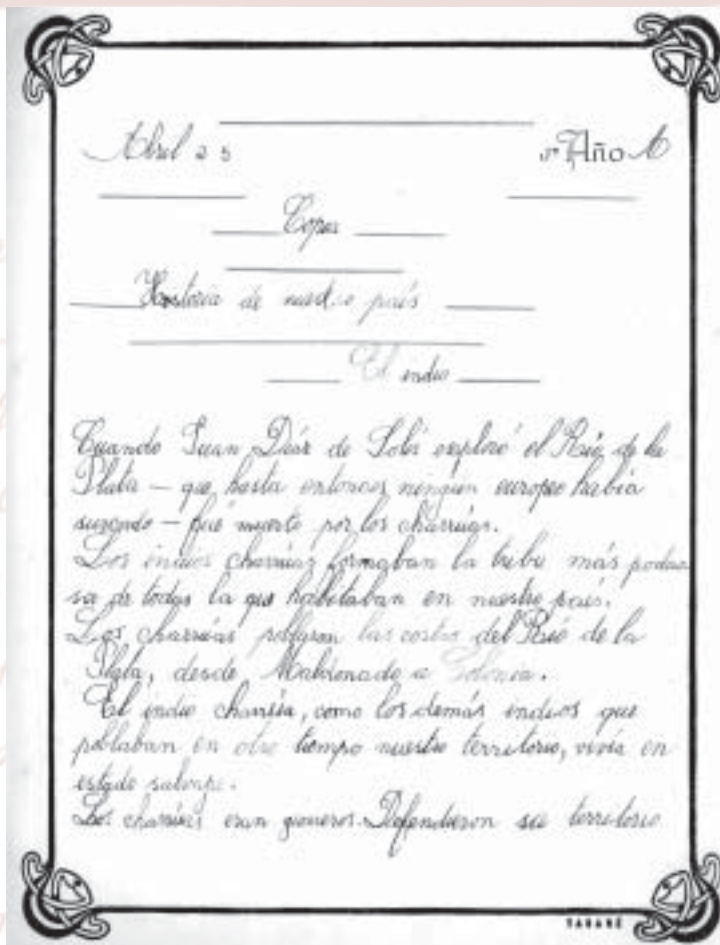 Abril 25 3er Año A
Copia
Historia de nuestro país
El indio
Cuando Juan Díaz de Solís exploró el Río de la
Plata — que hasta entonces ningún europeo había
surcado — fué muerto por los charrúas.
Los indios charrúas formaban la tribu más podero
sa de todas la que habitaban en nuestro país.
Los charrúas poblaron las costas del Río de la
Plata, desde Maldonado a Colonia.
El indio charrúa, como los demás indios que
poblaban en otro tiempo nuestro territorio, vivía en
estado salvaje.
Los charrúas eran guerreros. Defendieron su territorio
TABARÉ